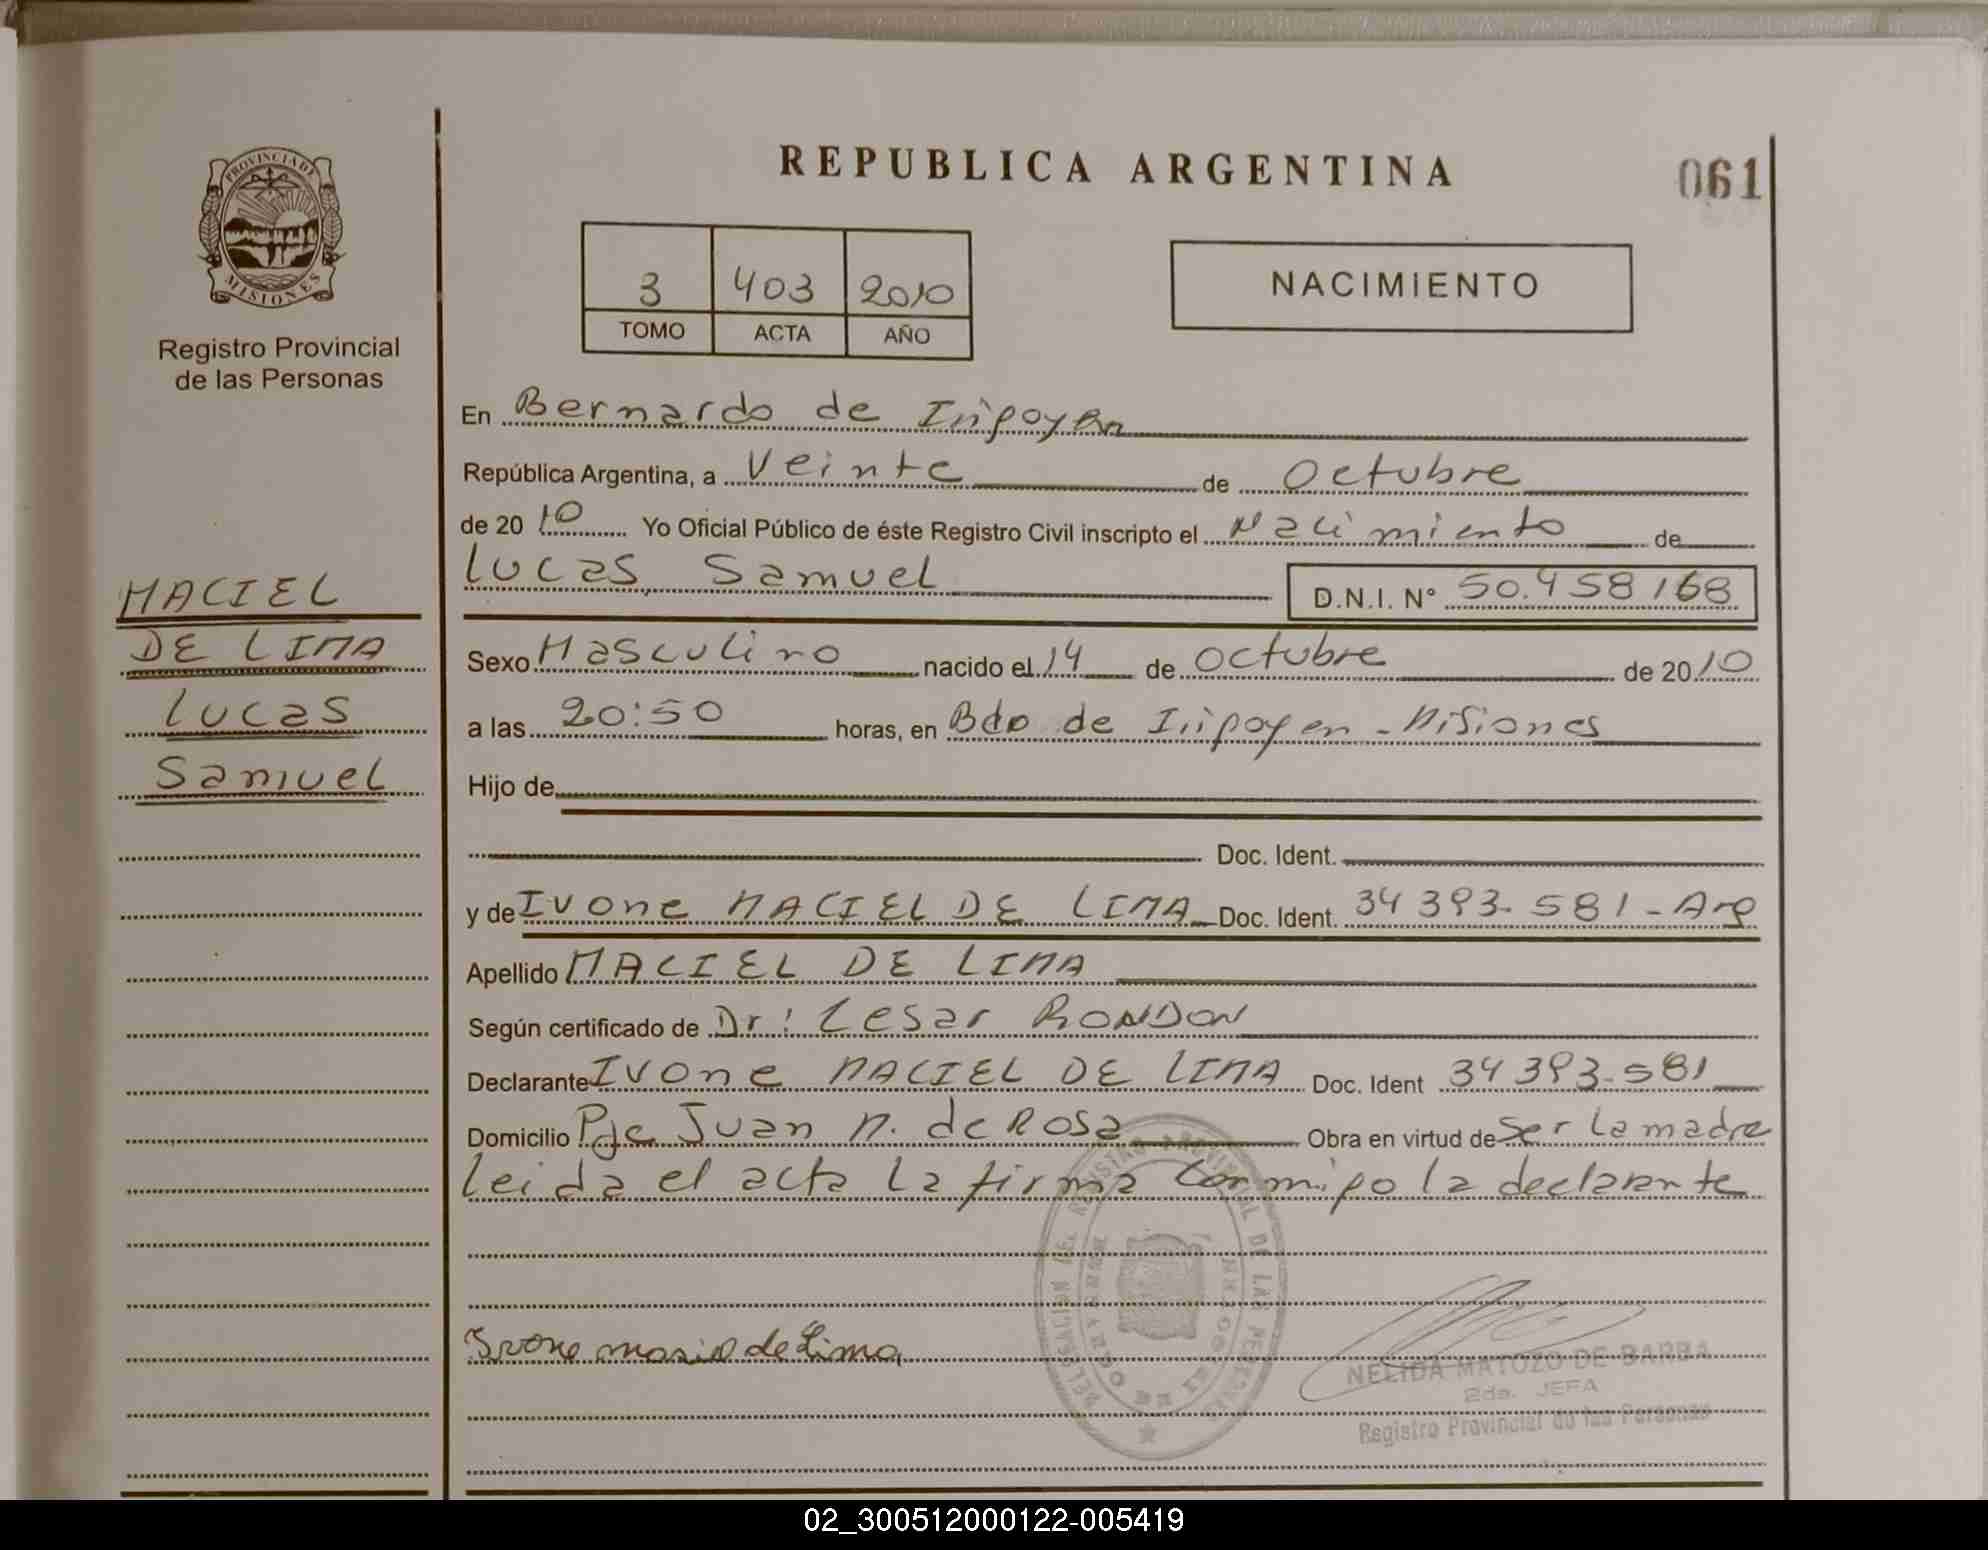 PROVINCIA DE
MISIONES
Registro Provincial
de las Personas
REPUBLICA ARGENTINA
061
3 403 2010
TOMO ACTA AÑO
NACIMIENTO
En Bernardo de Irigoyen
República Argentina, a Veinte de Octubre
de 2010 Yo Oficial Público de éste Registro Civil inscripto el Nacimiento de
Lucas Samuel D.N.I. N° 50.458168
MACIEL
DE LIMA
Lucas
Samuel
Sexo Masculino nacido el 14 de Octubre de 2010
a las 20:50 horas, en Bdo de Irigoyen - Misiones
Hijo de
Doc. Ident.
y de Ivone MACIEL DE LIMA Doc. Ident. 34393.581-Arg
Apellido MACIEL DE LIMA
Según certificado de Dr: Cesar RONDON
Declarante Ivone MACIEL DE LIMA Doc. Ident 34393.581
Domicilio Pje Juan M. de Rosa Obra en virtud de Ser la madre
leida el acta la firma conmigo la declarante
DELEGACION DEL REGISTRO PROVINCIAL DE LAS PERSONAS
Ivone de Lima
NELIDA MATOZO DE BARBA
2da. JEFA
Registro Provincial de las Personas
02_300512000122-005419